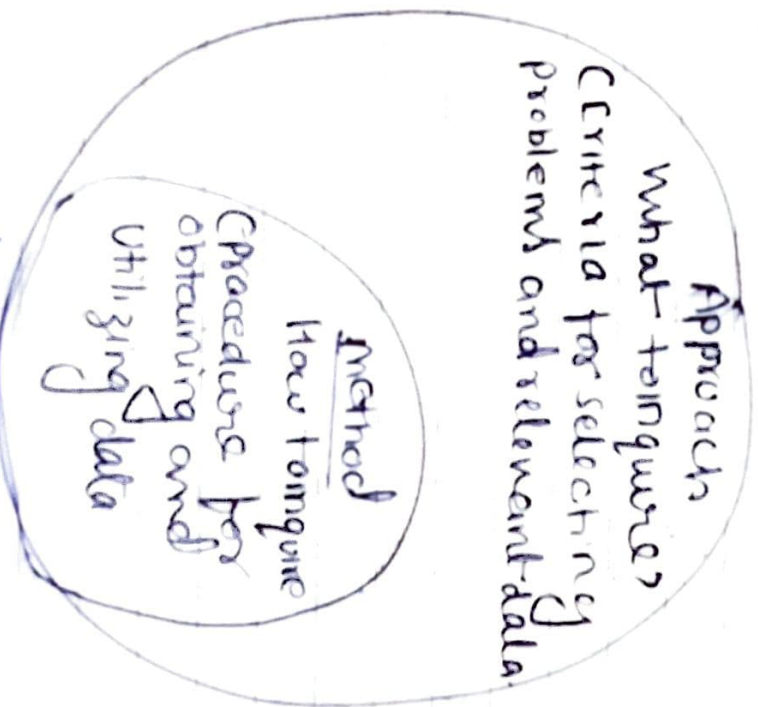 Approach
What to inquire?
(Criteria for selecting
problems and relevant data.
Method
How to inquire
(procedure for
obtaining and
utilizing data